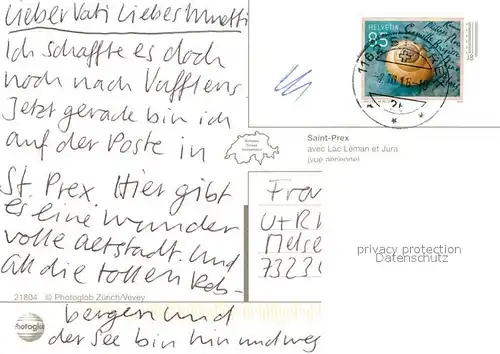 Lieber Vati Liebes Mutti
Ich schaffte es doch
noch nach Vufflens.
Jetzt gerade bin ich
auf der Poste in
St. Prex. Hier gibt
es eine wunder
volle altstadt. Und
all die tollen Reb-
bergen und
der See bin hin und weg
HELVETIA
85
Saint-Prex
avec Lac Léman et Jura
(vue aérienne)
Frau
U+R
Melse
7323
privacy protection
Datenschutz
21804 © Photoglob Zürich/Vevey
Photoglob